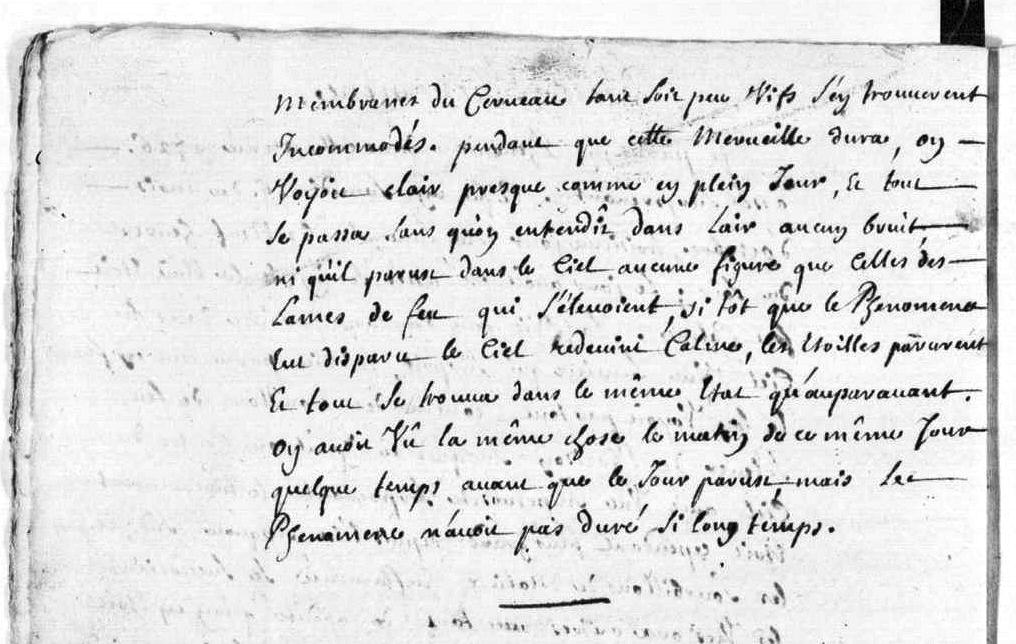 membranes du Cerveau tant soit peu Vifs s'en trouverent
Incommodés. pendant que cette Merveille dura, on
Voyoit clair presque comme en plein Jour, Et tout
se passa sans qu'on entendît dans Lair aucun bruit
ni qu'il parust dans le Ciel aucune figure que Celles des
Lames de feu qui s'élevoient, si tôt que le Phenomene
Eut disparu le Ciel redevint Calme, les Etoilles parurent
Et tout se trouva dans le même Etat qu'auparavant.
On avoit Vû la même chose le matin de ce même Jour
quelque temps avant que le Jour parust, mais Le
Phenomene n'avoit pas duré si long temps.